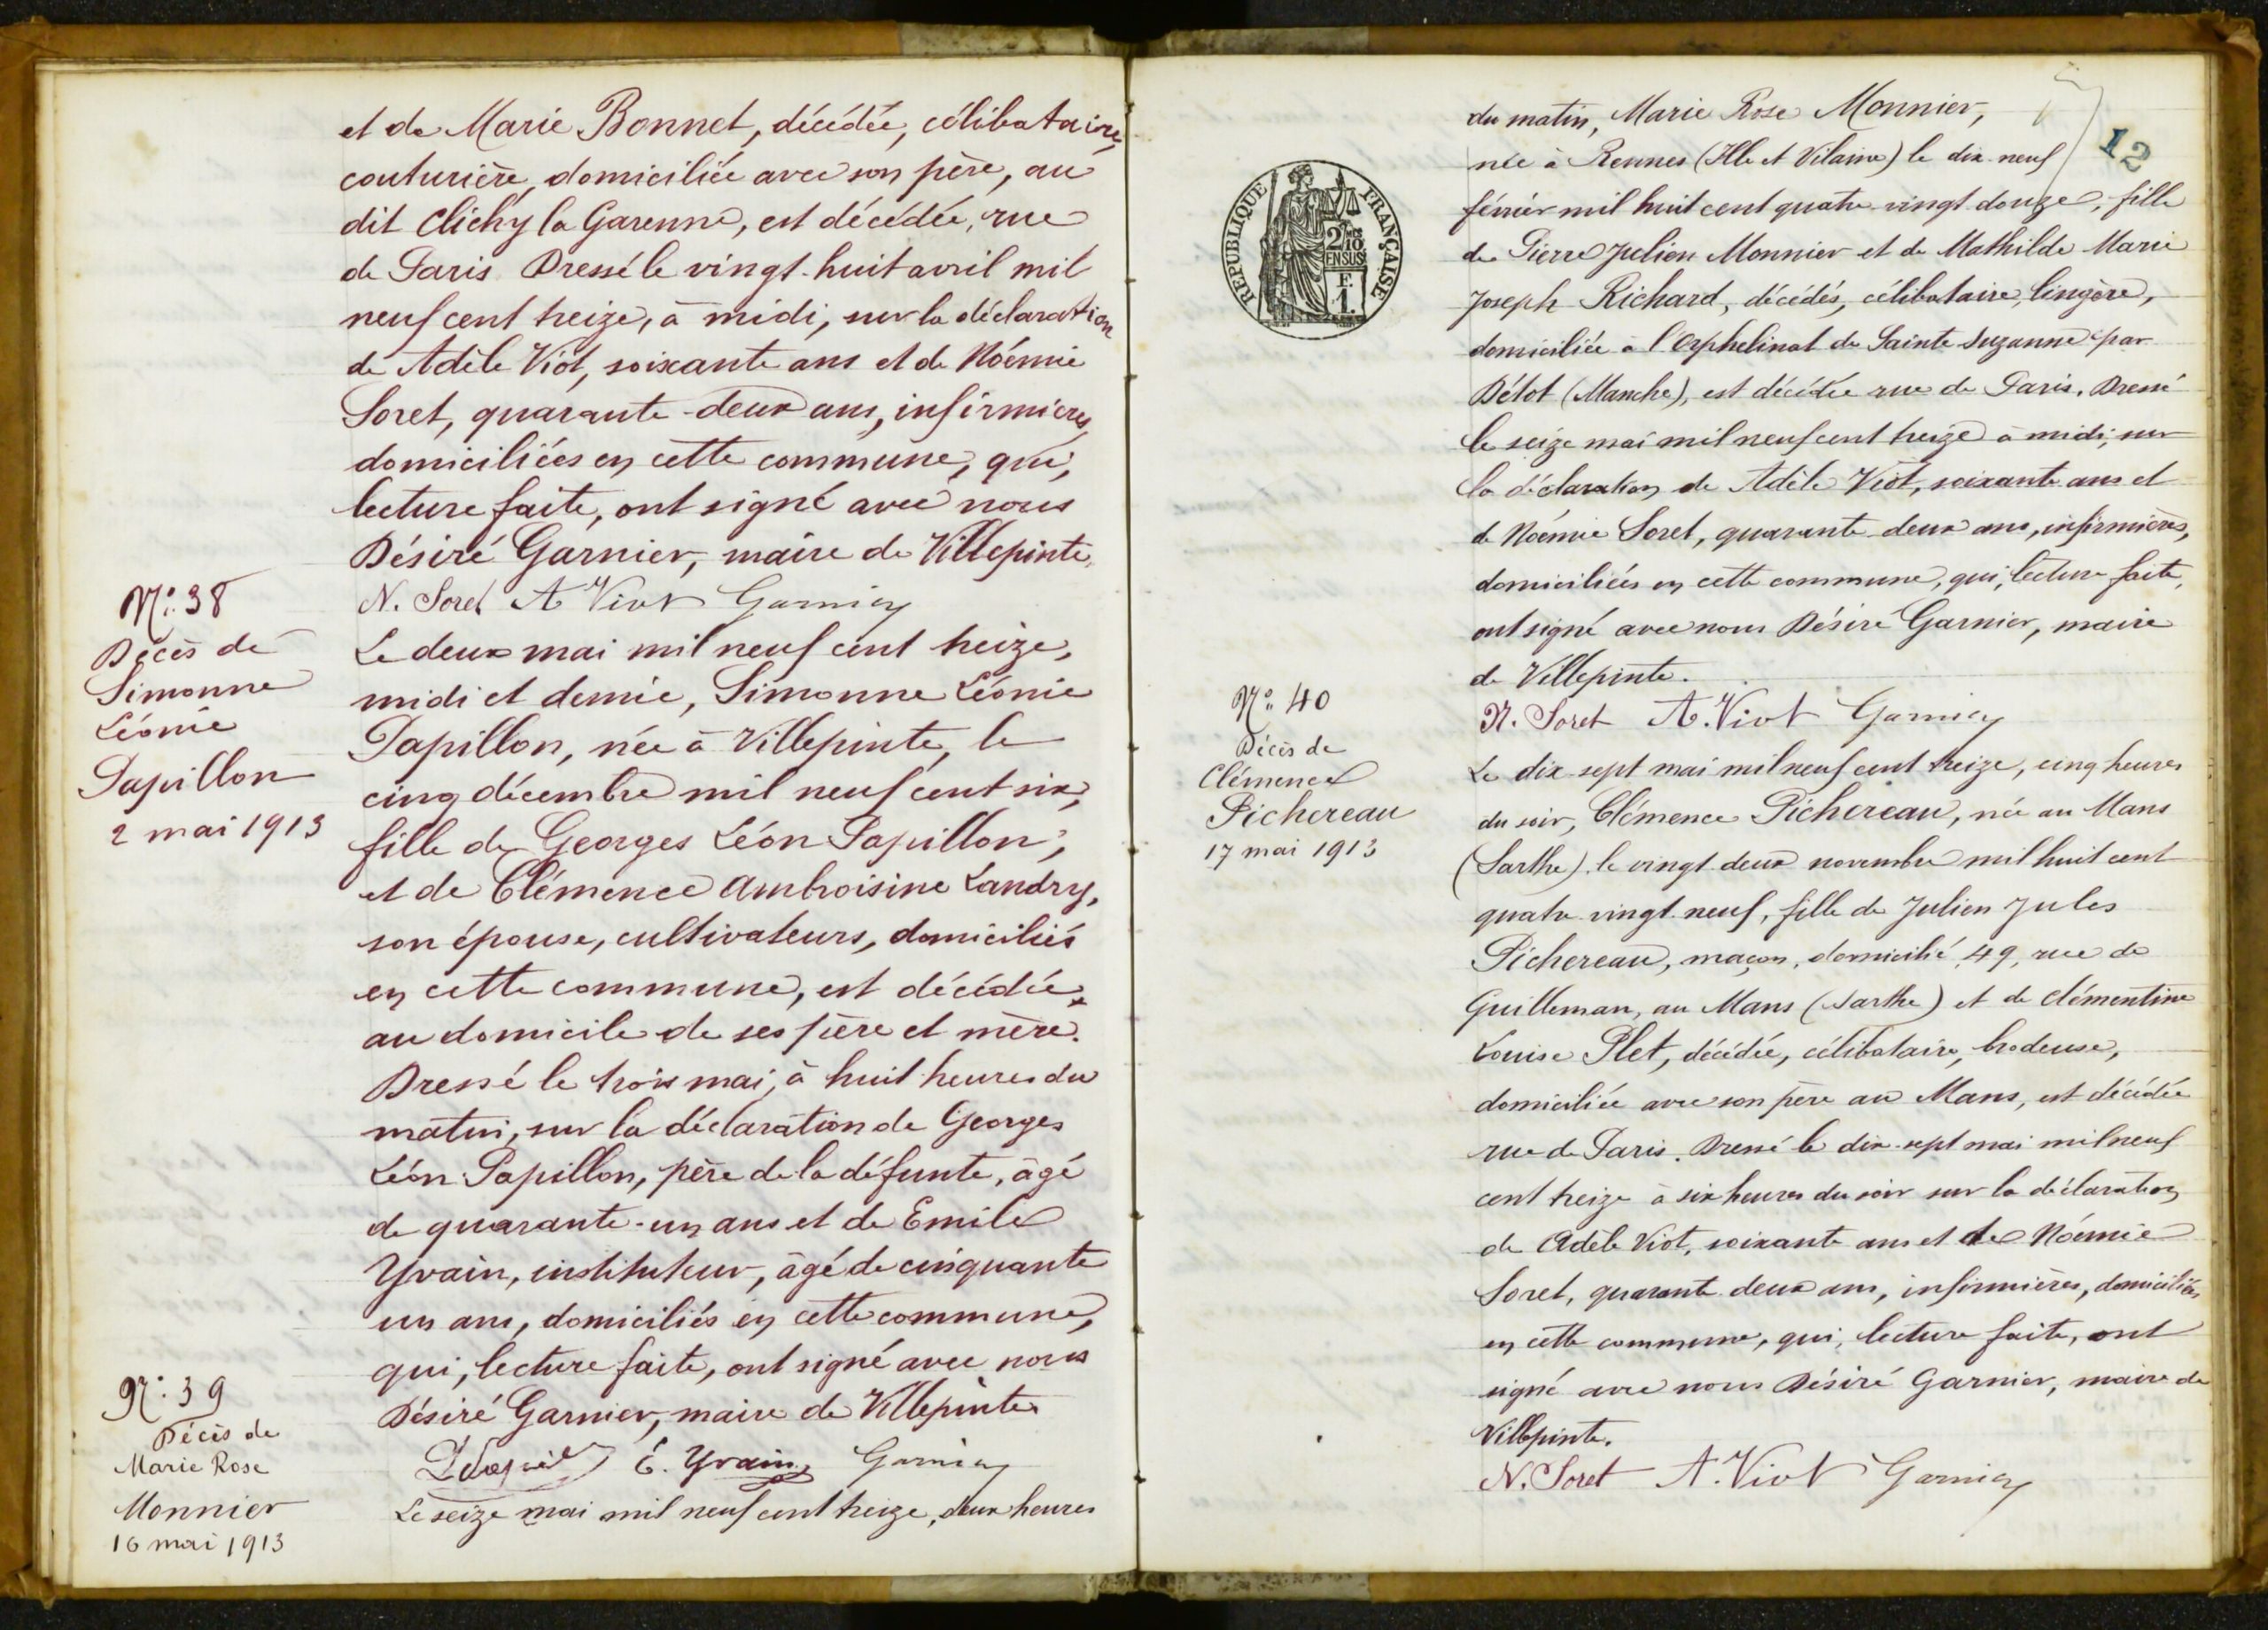 et de Marie Bonnet, décédée, célibataire,
couturière, domiciliée avec son père, au
dit Clichy la Garenne, est décédée, rue
de Paris. Dressé le vingt-huit avril mil
neuf cent treize, à midi, sur la déclaration
de Adèle Viot, soixante ans et de Noémie
Soret, quarante-deux ans, infirmières,
domiciliées en cette commune, qui,
lecture faite, ont signé avec nous
Désiré Garnier, maire de Villepinte.
N. Soret A Viot Garnier
N° 38
Décès de
Simonne
Léonie
Papillon
2 mai 1913
Le deux mai mil neuf cent treize,
midi et demie, Simonne Léonie
Papillon, née à Villepinte, le
cinq décembre mil neuf cent six,
fille de Georges Léon Papillon,
et de Clémence Ambroisine Landry,
son épouse, cultivateurs, domiciliés
en cette commune, est décédée
au domicile de ses père et mère.
Dressé le trois mai, à huit heures du
matin, sur la déclaration de Georges
Léon Papillon, père de la défunte, âgé
de quarante-un ans et de Emile
Yvain, instituteur, âgé de cinquante
un ans, domiciliés en cette commune,
qui, lecture faite, ont signé avec nous
Désiré Garnier, maire de Villepinte
E. Yvain Garnier
N° 39
Décès de
Marie Rose
Monnier
16 mai 1913
Le seize mai mil neuf cent treize, deux heures
12
RÉPUBLIQUE FRANÇAISE
2/10 MES
EN SUS
F.
1.
du matin, Marie Rose Monnier,
née à Rennes (Ille et Vilaine) le dix-neuf
février mil huit cent quatre-vingt-douze, fille
de Pierre Julien Monnier et de Mathilde Marie
Joseph Richard, décédés, célibataire, lingère,
domiciliée à l'Orphelinat de Sainte Suzanne par
Détot (Manche), est décédée rue de Paris. Dressé
le seize mai mil neuf cent treize à midi, sur
la déclaration de Adèle Viot, soixante ans et
de Noémie Soret, quarante-deux ans, infirmières,
domiciliées en cette commune, qui, lecture faite,
ont signé avec nous Désiré Garnier, maire
de Villepinte.
N. Soret A. Viot Garnier
N° 40
Décès de
Clémence
Pichereau
17 mai 1913
Le dix-sept mai mil neuf cent treize, cinq heures
du soir, Clémence Pichereau, née au Mans
(Sarthe) le vingt-deux novembre mil huit cent
quatre-vingt-neuf, fille de Julien Jules
Pichereau, maçon, domicilié, 49, rue de
Guilleman, au Mans (Sarthe) et de Clémentine
Louise Plet, décédée, célibataire, brodeuse,
domiciliée avec son père au Mans, est décédée
rue de Paris. Dressé le dix-sept mai mil neuf
cent treize à six heures du soir sur la déclaration
de Adèle Viot, soixante ans et de Noémie
Soret, quarante-deux ans, infirmières, domiciliées
en cette commune, qui, lecture faite, ont
signé avec nous Désiré Garnier, maire de
Villepinte.
N. Soret A. Viot Garnier